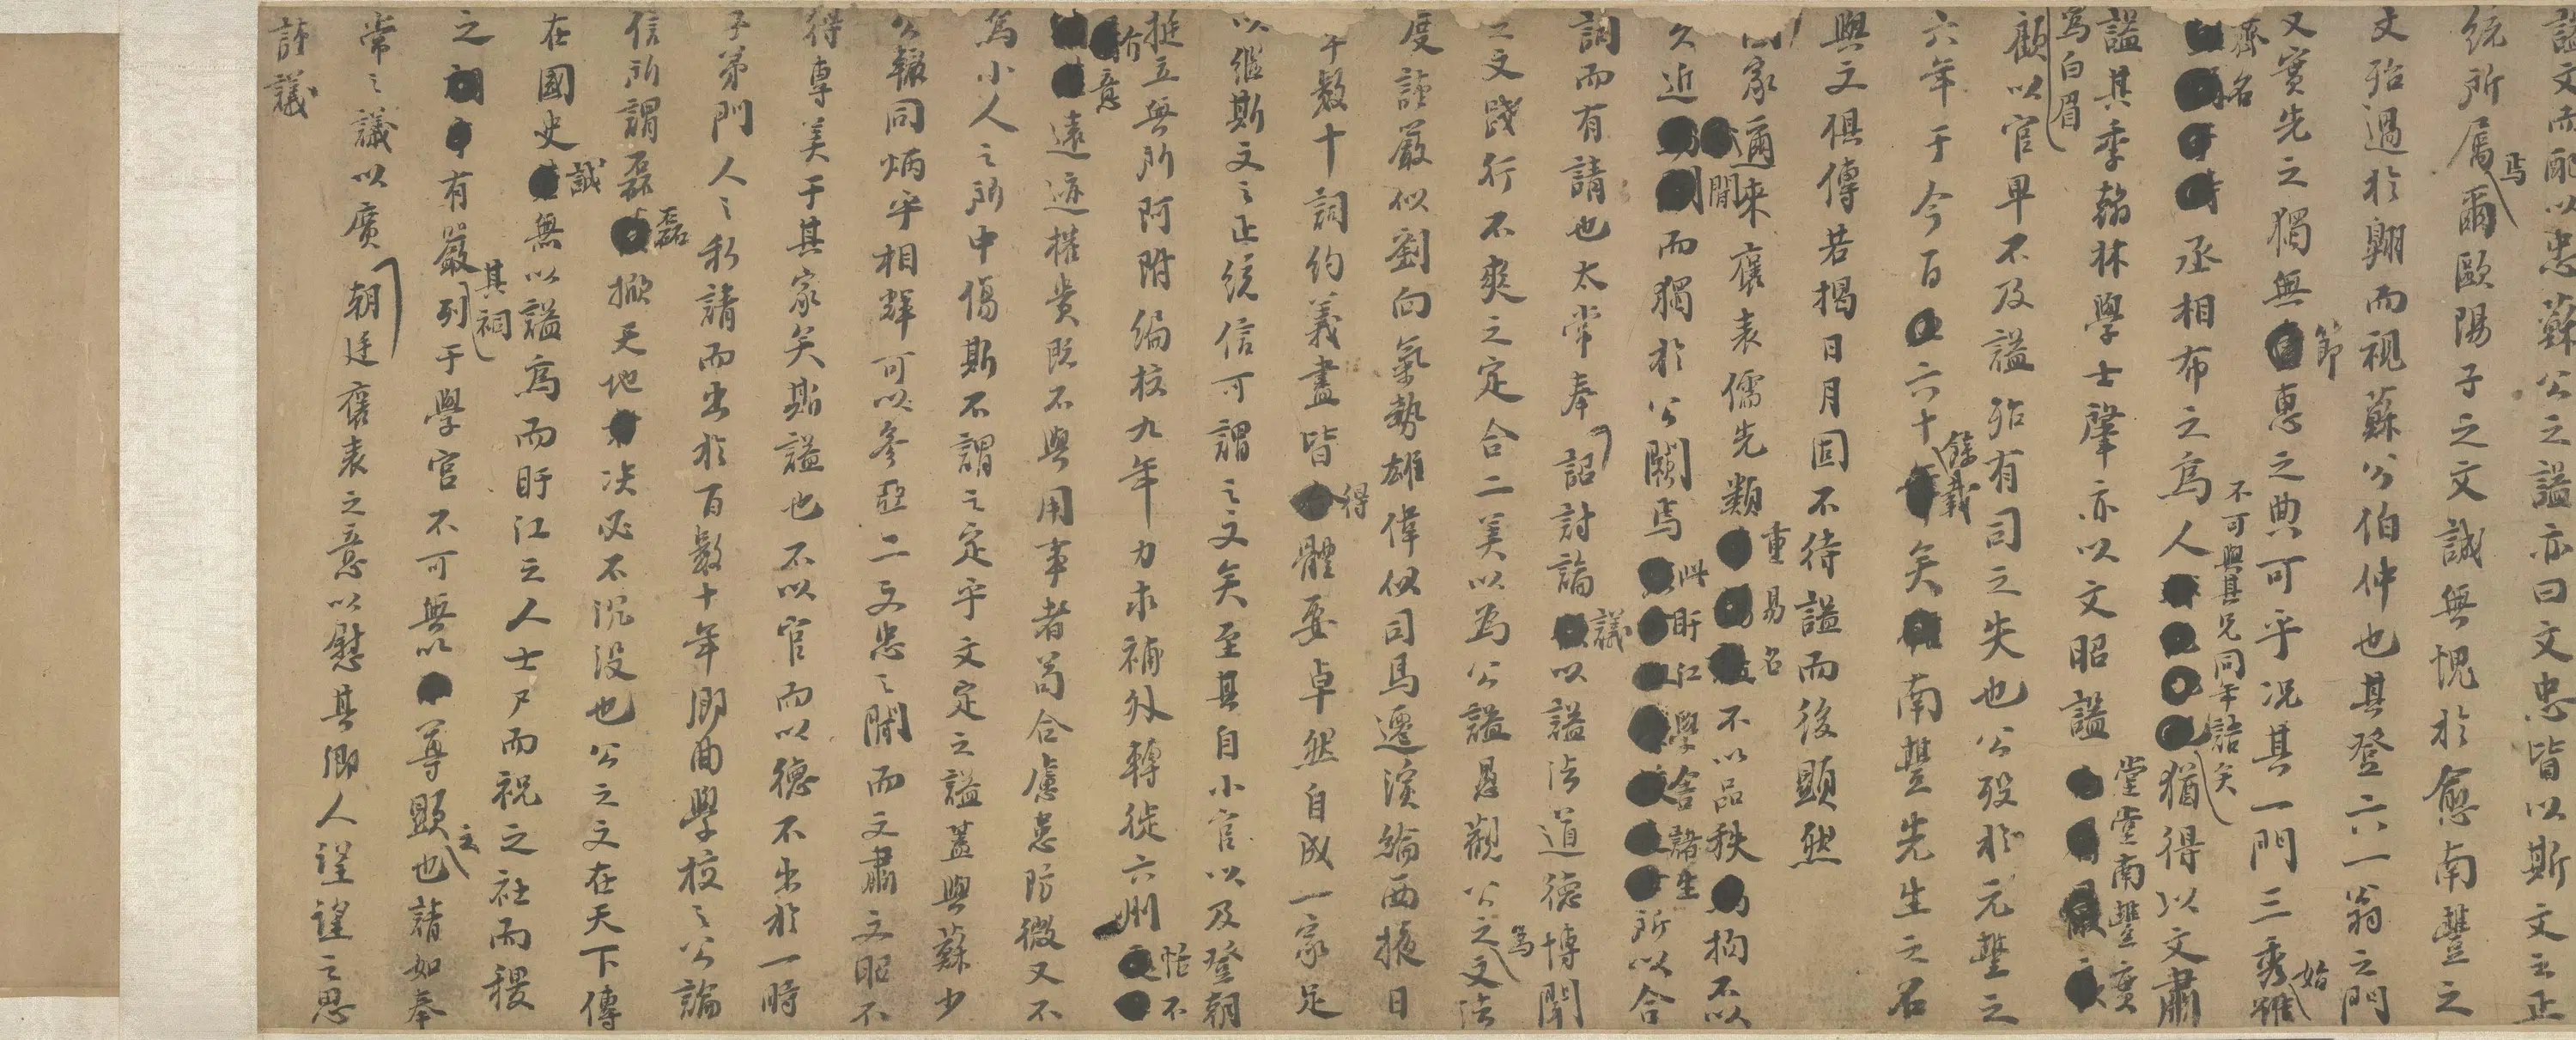 諡文而配以忠蘇公之諡亦曰文忠皆以斯文之正
統所屬焉爾歐陽子之文誠無愧於愈南豐之
文殆過於翱而視蘇公伯仲也其登六一翁之門
又實先之獨無節惠之典可乎況其一門三秀雖始
齊名丞相布之為人不可與其兄同年語矣猶得以文肅
諡其季翰林學士肇亦以文昭諡堂堂南豐實
為白眉顧以官卑不及諡殆有司之失也公歿於元豐之
六年于今百六十餘載矣南豐先生之名
與文俱傳若揭日月固不待諡而後顯然
國家邇來褒表儒先類重易名不以品秩拘不以
久近間而獨於公闕焉此盱江學舍諸生所以合
詞而有請也太常奉詔討論議以諡法道德博聞
之文踐行不爽之定合二美以為公諡愚觀公之為文法
度謹嚴似劉向氣勢雄偉似司馬遷演綸西掖日
草數十詞約義盡皆得體要卓然自成一家足
以繼斯文之正統信可謂之文矣至其自小官以及登朝
挺立無所阿附編校九年力求補外轉徙六州恬不
介意遠迹權貴既不與用事者苟合慮患防微又不
為小人之所中傷斯不謂之定乎文定之諡蓋與蘇少
公轍同炳乎相輝可以參亞二文忠之間而文肅文昭不
得專美于其家矣斯諡也不以官而以德不出於一時
子弟門人之私請而出於百數十年鄉曲學校之公論
信所謂磊磊掀天地決必不沉沒也公之文在天下傳
在國史誠無以諡為而盱江之人士尸而祝之社而稷
之有嚴其祠列于學官不可無以尊顯之也請如奉
常之議以廣朝廷褒表之意以慰其鄉人之思
謹議